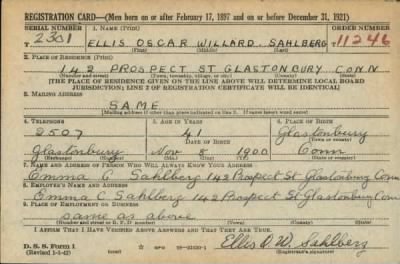 REGISTRATION CARD—(Men born on or after February 17, 1897 and on or before December 31, 1921)
SERIAL NUMBER 1. NAME (Print) ORDER NUMBER
2301 ELLIS OSCAR WILLARD SAHLBERG 11246
(First) (Middle) (Last)
2. PLACE OF RESIDENCE (Print)
142 PROSPECT ST GLASTONBURY CONN
(Number and street) (Town, township, village, or city) (County) (State)
[THE PLACE OF RESIDENCE GIVEN ON THE LINE ABOVE WILL DETERMINE LOCAL BOARD
JURISDICTION; LINE 2 OF REGISTRATION CERTIFICATE WILL BE IDENTICAL]
3. MAILING ADDRESS
SAME
[Mailing address if other than place indicated on line 2. If same insert word same]
4. TELEPHONE 5. AGE IN YEARS 6. PLACE OF BIRTH
2507 41 Glastonbury
DATE OF BIRTH (Town or county)
Glastonbury Nov 8 1900 Conn
(Exchange) (Number) (Mo.) (Day) (Yr.) (State or country)
7. NAME AND ADDRESS OF PERSON WHO WILL ALWAYS KNOW YOUR ADDRESS
Emma C Sahlberg 142 Prospect St Glastonbury Conn
8. EMPLOYER'S NAME AND ADDRESS
Emma C Sahlberg 142 Prospect St Glastonbury Conn
9. PLACE OF EMPLOYMENT OR BUSINESS
same as above
(Number and street or R. F. D. number) (Town) (County) (State)
I AFFIRM THAT I HAVE VERIFIED ABOVE ANSWERS AND THAT THEY ARE TRUE.
D. S. S. Form 1
(Revised 1-1-42) Ellis O. W. Sahlberg